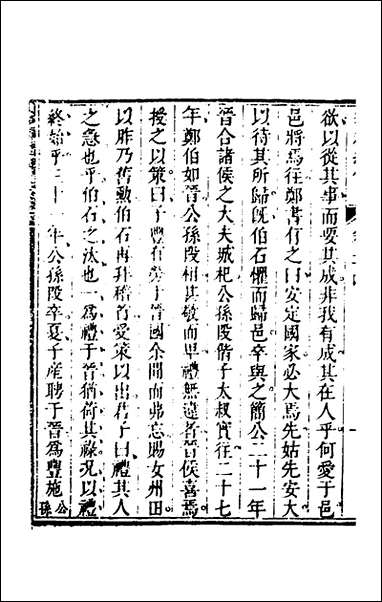 欲以從其事而要其成非我有成其在人乎何愛于邑
邑將焉往鄭書有之曰安定國家必大焉先姑先安大
以待其所歸旣伯石懼而歸邑卒與之簡公二十一年
晉合諸侯之大夫城杞公孫段偕子太叔實往二十七
年鄭伯如晉公孫段相甚敬而卑禮無違者晉侯喜焉
授之以策曰子豐有勞于晉國余聞而弗忘賜女州田
以胙乃舊勳伯石再拜稽首受策以出君子曰禮其人
之急也乎伯石之汰也一爲禮于晉猶荷其祿况以禮
終始乎三十一年公孫段卒夏子産聘于晉爲豐施公孫